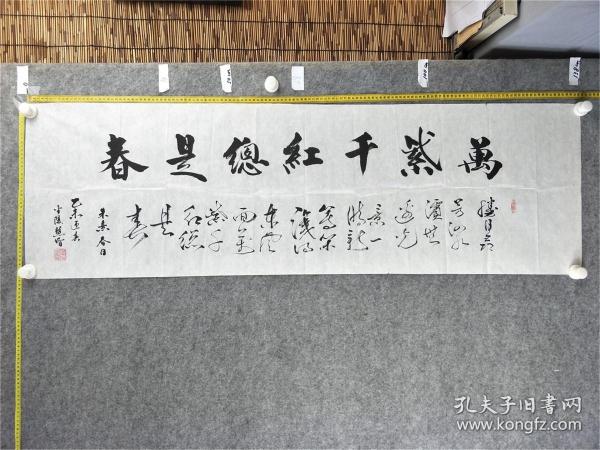 萬紫千紅總是春
勝日尋
芳泗水
濱無
邊光
景一
時新
等閑
識得
東風
面萬
紫千
紅總
是
春
朱熹春日
乙未迎春
孔夫子旧书网
www.kongfz.com